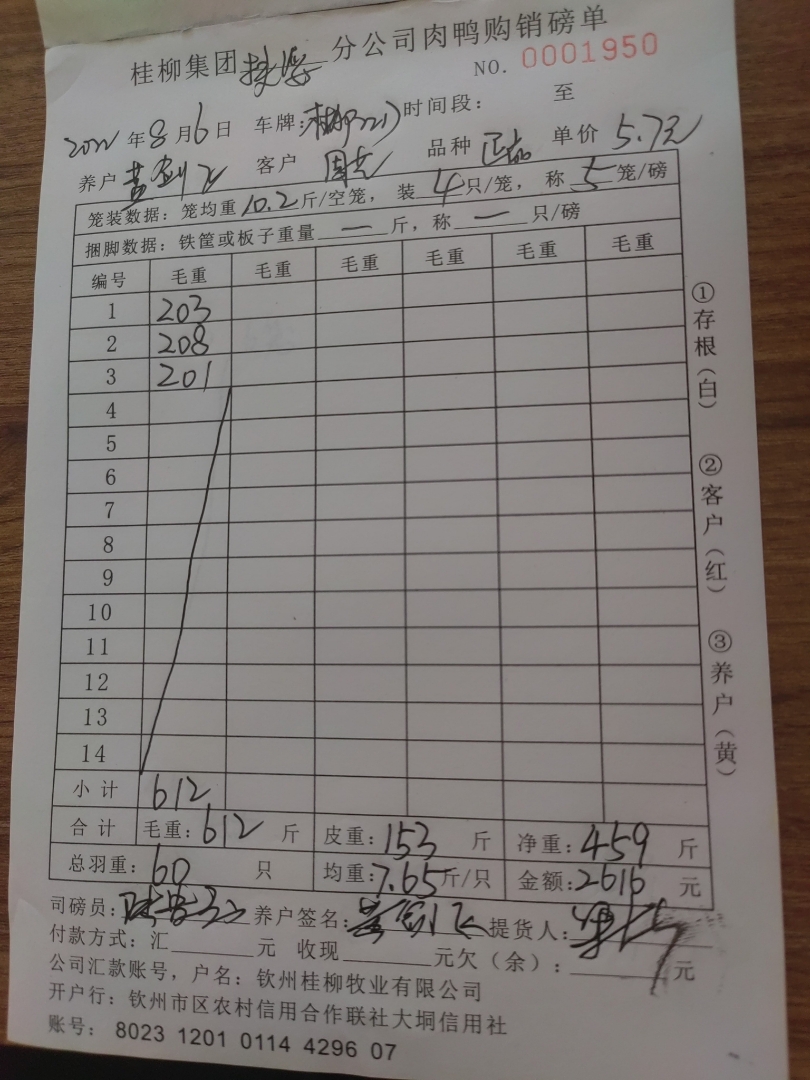 桂柳集团 分公司肉鸭购销磅单
NO. 0001950
2022年8月6日 车牌: 时间段: 至
养户 黄剑飞 客户 周 品种 正品 单价 5.7元
笼装数据: 笼均重10.2斤/空笼, 装4只/笼, 称5笼/磅
捆脚数据: 铁筐或板子重量—斤, 称—只/磅
编号 毛重 毛重 毛重 毛重 毛重 毛重
1 203
2 208
3 201
4
5
6
7
8
9
10
11
12
13
14
小计 612
合计 毛重:612斤 皮重:153斤 净重:459斤
总羽重:60只 均重:7.65斤/只 金额:2616元
司磅员: 养户签名:黄剑飞 提货人:
付款方式: 汇 元 收现 元欠(余): 元
公司汇款账号, 户名: 钦州桂柳牧业有限公司
开户行: 钦州市区农村信用合作联社大垌信用社
账号: 8023 1201 0114 4296 07
①存根(白)
②客户(红)
③养户(黄)